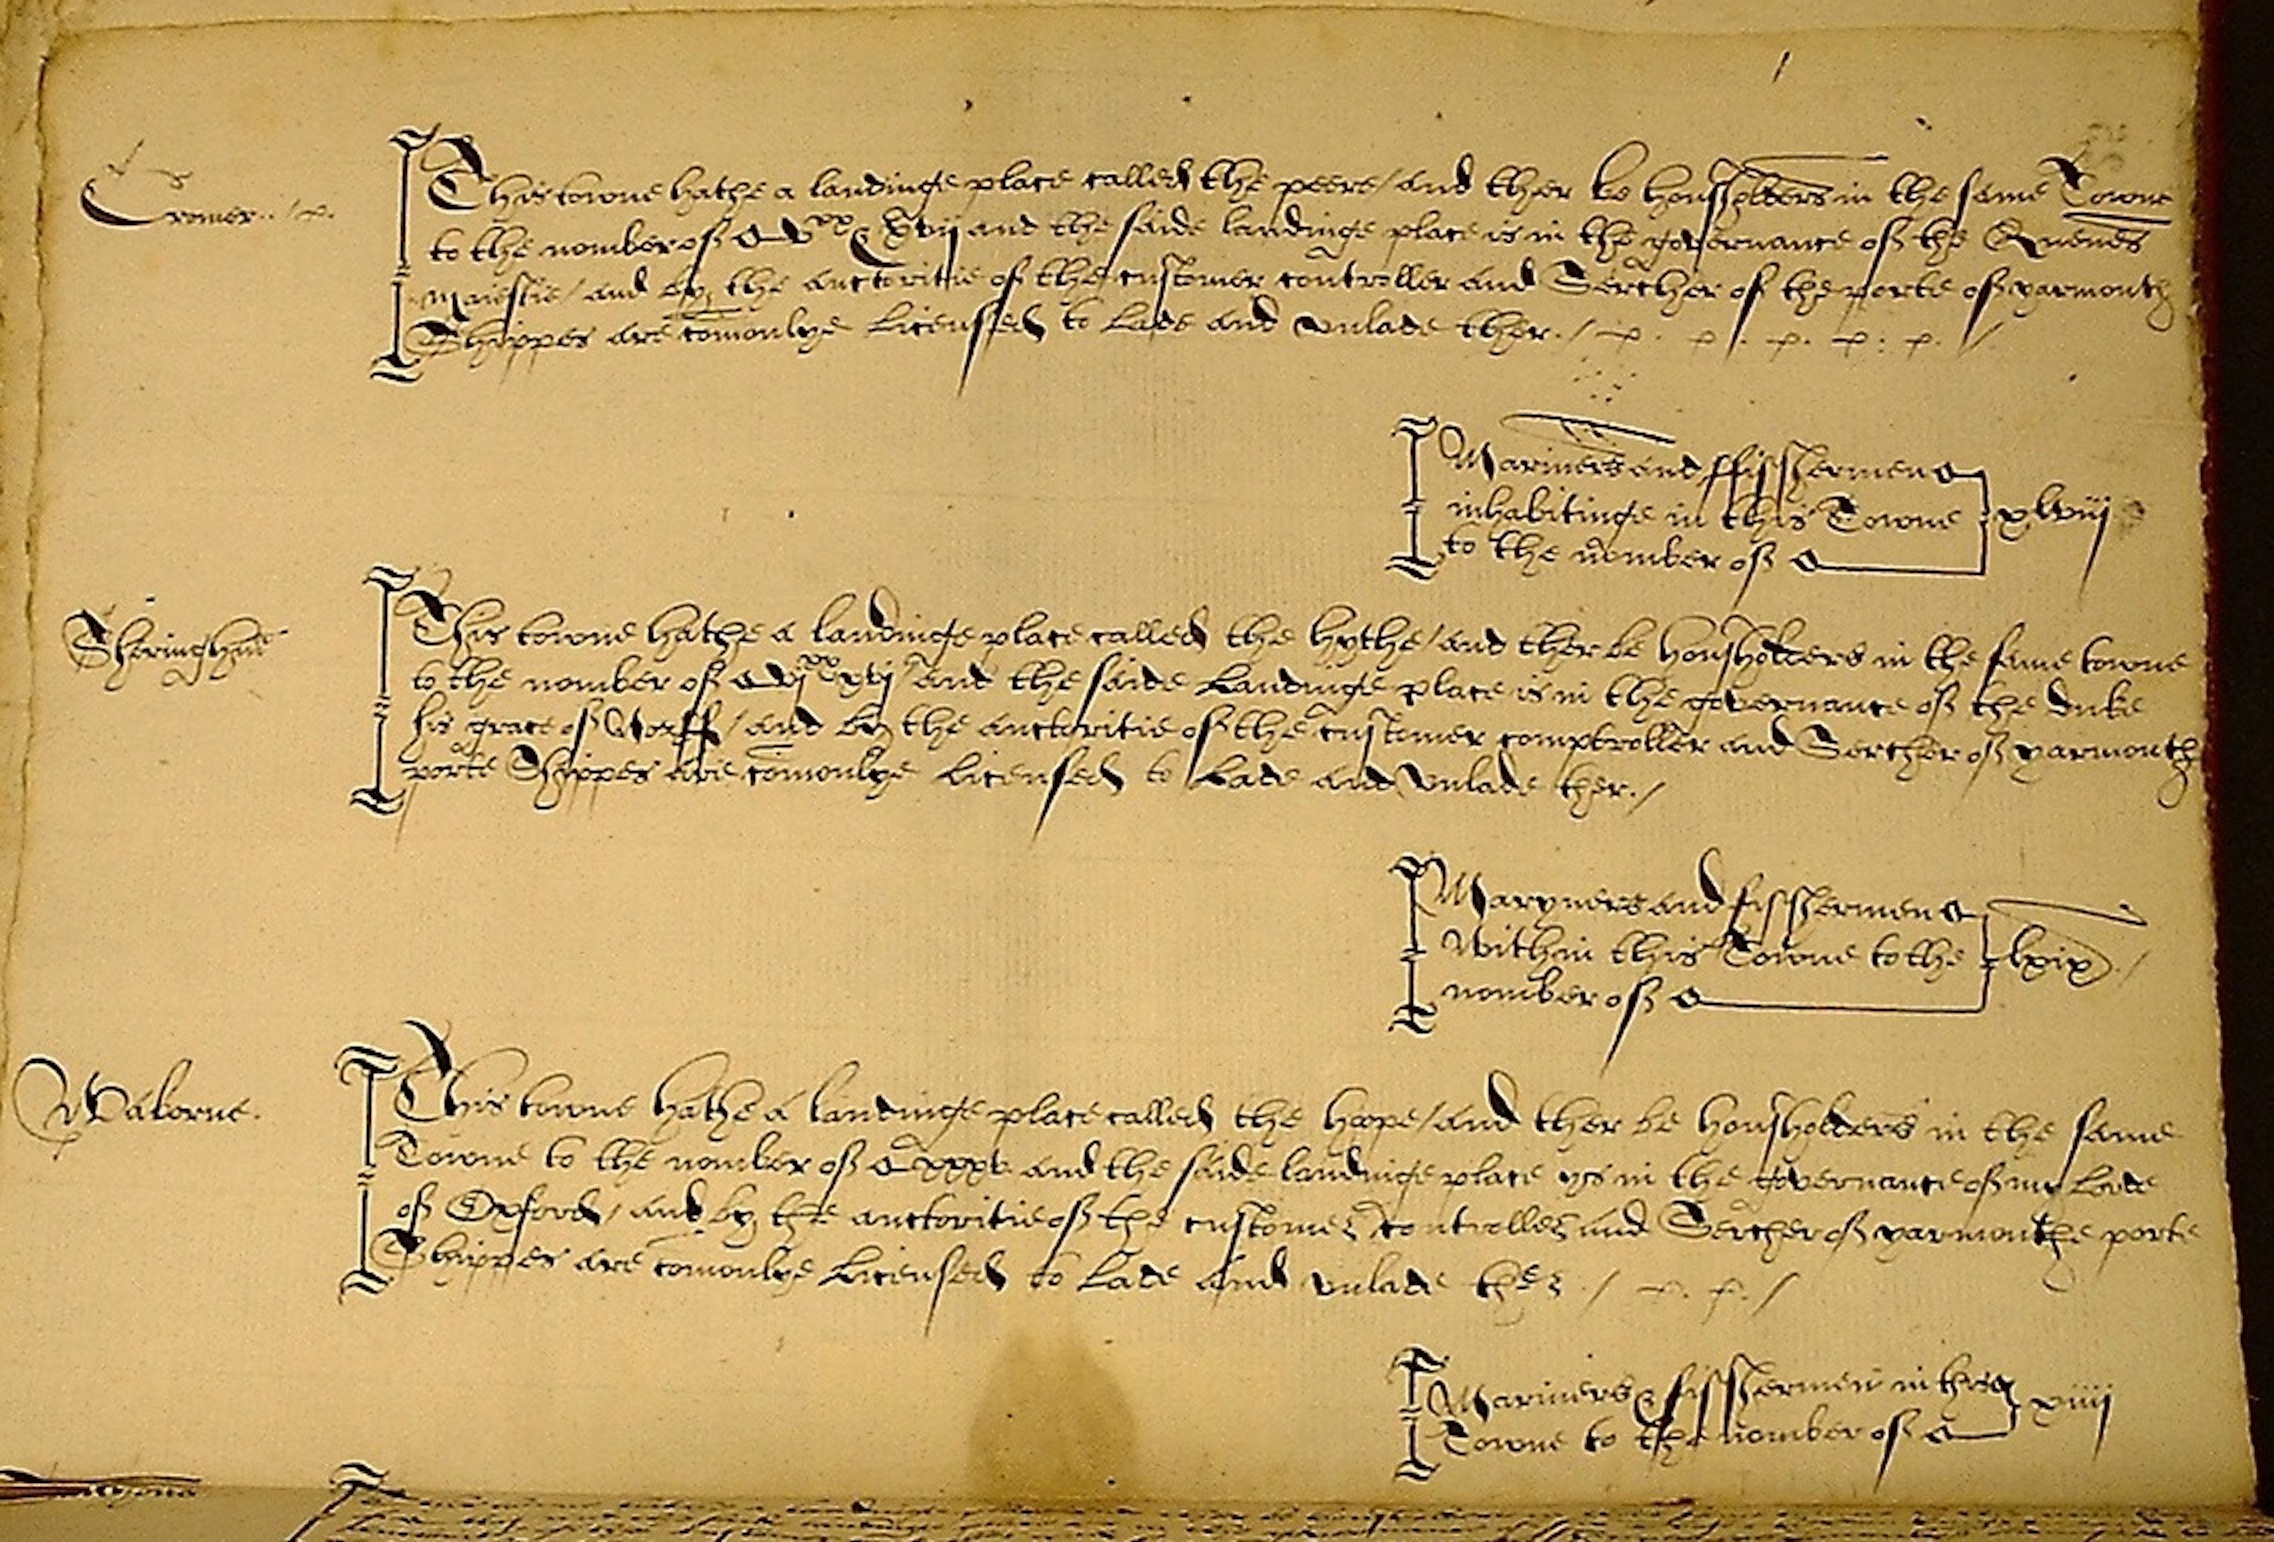 Cromer
This towne hathe a landinge place called the peere / and ther be housholders in the same Towne
to the nomber of v^xx xvij and the saide landinge place is in the governance of the Quenes
Maiestie / and by the auctoritie of the customer controller and Sercher of the porte of yarmouth
Shippes are comonlye Licensed to Lade and vnlade ther. /
Mariners and ffisshermen
inhabitinge in this Towne
to the nomber of
xlviij
Sheringhm
This towne hathe a landinge place called the hythe / and ther be housholders in the same towne
to the nomber of vj^xx xvj and the saide Landinge place is in the governance of the duke
his grace of Norff / and by the auctoritie of the customer comptroller and Sercher of yarmouth
porte Shippes are comonlye Licensed to Lade and Vnlade ther. /
Maryners and fisshermen
Within this Towne to the
nomber of
lxix
Waborne.
This towne hathe a landinge place called the hope / and ther be housholders in the same
Towne to the nomber of xxxv and the saide landinge place ys in the governance of my Lorde
of Oxford / and by the auctoritie of the customer controller and Sercher of yarmouthe porte
Shippes are comonlye Licensed to Lade and vnlade ther. /
Mariners & fisshermen in this
Towne to the nomber of
xiiij